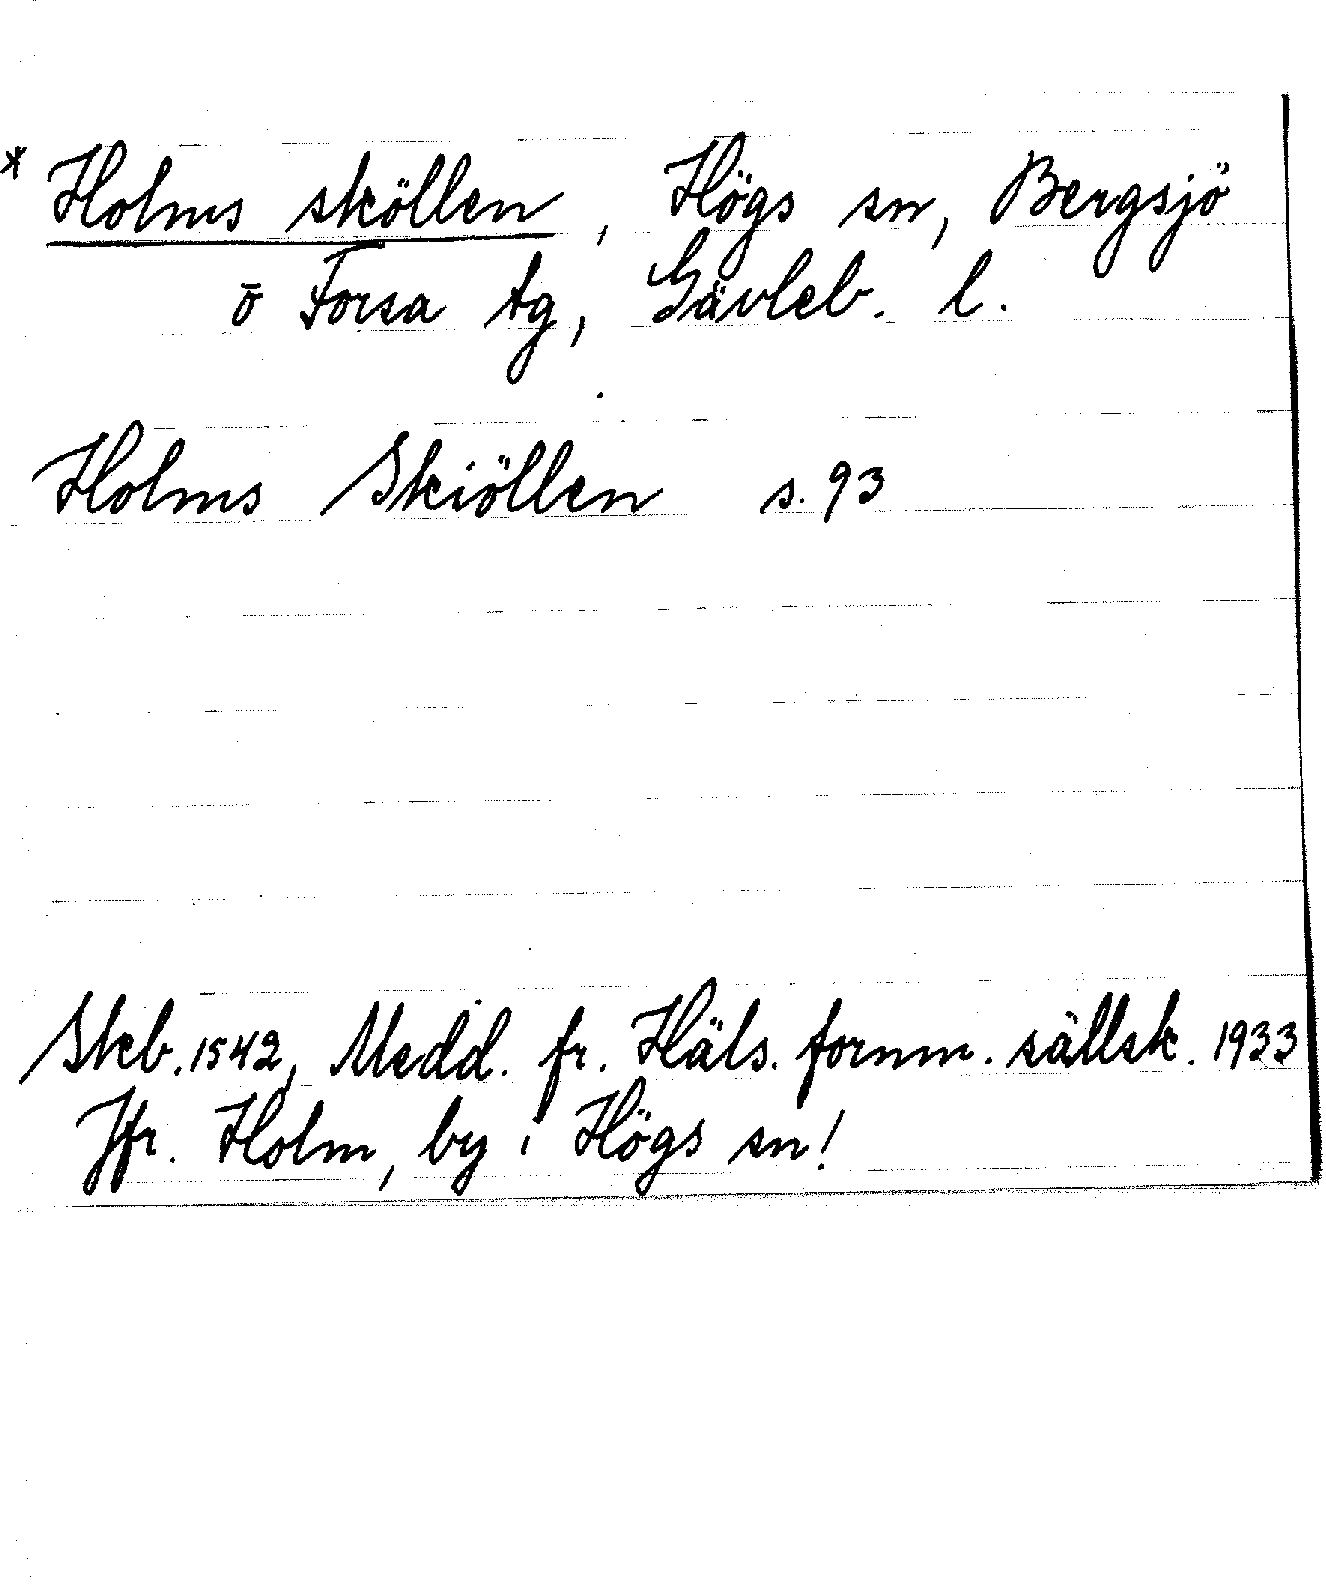 * Holms sköllen, Högs sn, Bergsjö
o Forsa tg, Gävleb. l.
Holms Skiöllen s. 93
Skb. 1542, Medd. fr. Häls. fornm. sällsk. 1933
Jfr. Holm, by i Högs sn!